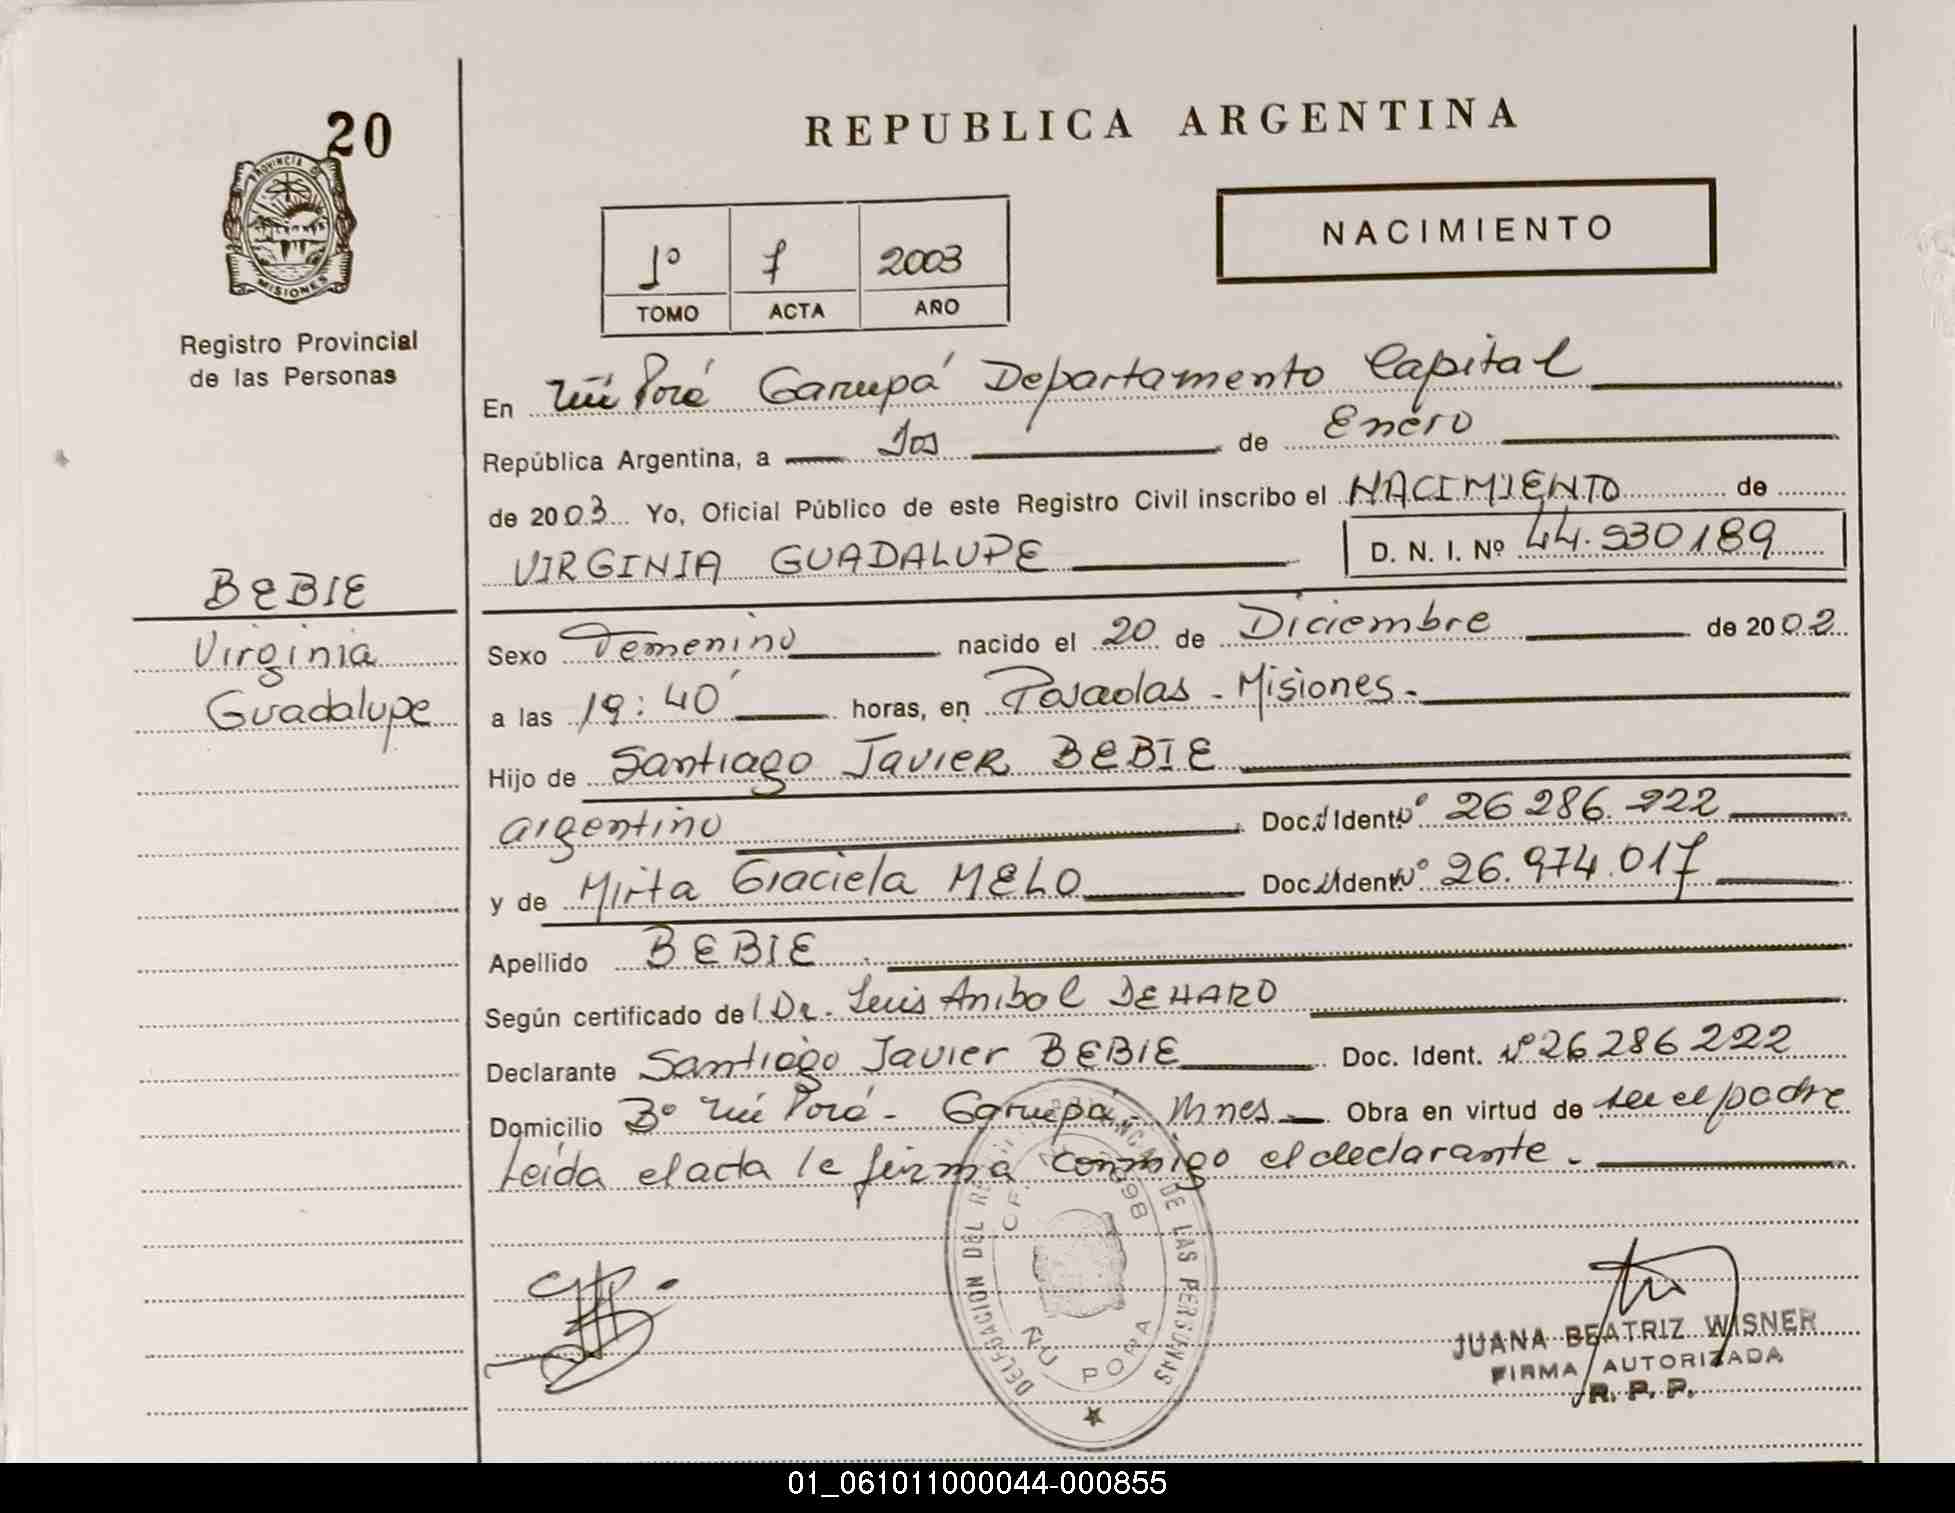 20
PROVINCIA DE
MISIONES
Registro Provincial
de las Personas
REPUBLICA ARGENTINA
1º 7 2003
TOMO ACTA AÑO
NACIMIENTO
En Ñú Porá Garupá Departamento Capital
República Argentina, a dos de Enero
de 2003 Yo, Oficial Público de este Registro Civil inscribo el NACIMIENTO de
VIRGINIA GUADALUPE D. N. I. Nº 44.930189
BEBIE
Virginia
Guadalupe
Sexo Femenino nacido el 20 de Diciembre de 2002
a las 19:40' horas, en Posadas - Misiones.-
Hijo de Santiago Javier BEBIE
argentino Doc. Ident. Nº 26 286.222
y de Mirta Graciela MELO Doc. Ident. Nº 26.974.017
Apellido BEBIE
Según certificado del Dr. Luis Anibal DEHARO
Declarante Santiago Javier BEBIE Doc. Ident. Nº 26286222
Domicilio Bº Ñú Porá - Garupá - Mnes Obra en virtud de ser el padre
Leída el acta la firma conmigo el declarante.-
DELEGACION DEL DE LAS PERSONAS
ÑU PORA
JUANA BEATRIZ WISNER
FIRMA AUTORIZADA
R. P. P.
01_061011000044-000855